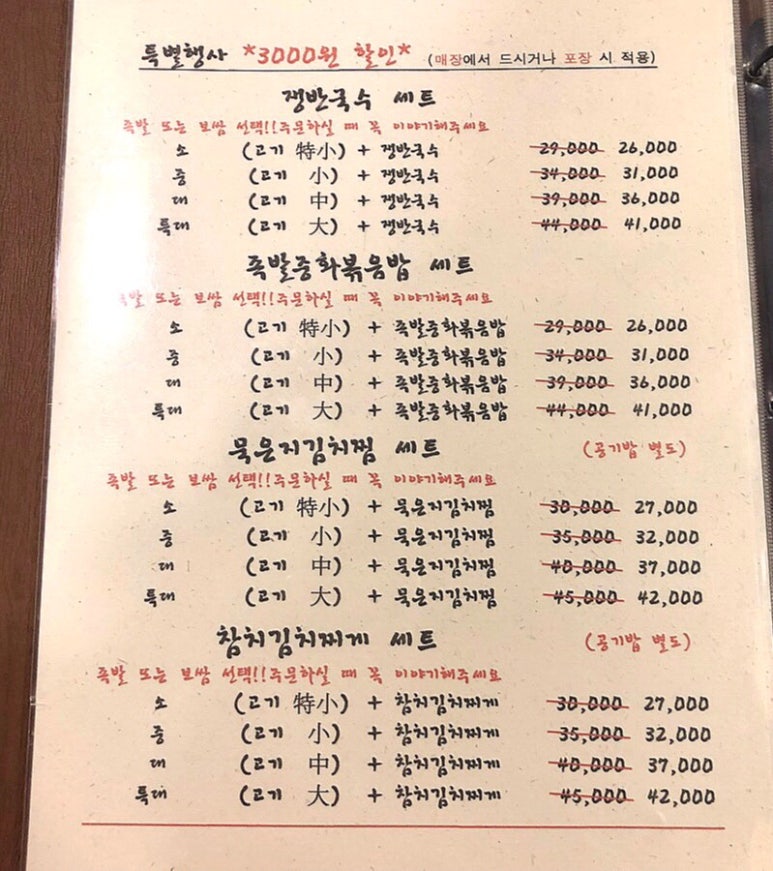 특별행사 *3000원 할인* (매장에서 드시거나 포장 시 적용)
쟁반국수 세트
족발 또는 보쌈 선택!!주문하실 때 꼭 이야기해주세요
소 (고기 特小) + 쟁반국수 29,000 26,000
중 (고기 小) + 쟁반국수 34,000 31,000
대 (고기 中) + 쟁반국수 39,000 36,000
특대 (고기 大) + 쟁반국수 44,000 41,000
족발중화볶음밥 세트
족발 또는 보쌈 선택!!주문하실 때 꼭 이야기해주세요
소 (고기 特小) + 족발중화볶음밥 29,000 26,000
중 (고기 小) + 족발중화볶음밥 34,000 31,000
대 (고기 中) + 족발중화볶음밥 39,000 36,000
특대 (고기 大) + 족발중화볶음밥 44,000 41,000
묵은지김치찜 세트 (공기밥 별도)
족발 또는 보쌈 선택!!주문하실 때 꼭 이야기해주세요
소 (고기 特小) + 묵은지김치찜 30,000 27,000
중 (고기 小) + 묵은지김치찜 35,000 32,000
대 (고기 中) + 묵은지김치찜 40,000 37,000
특대 (고기 大) + 묵은지김치찜 45,000 42,000
참치김치찌게 세트 (공기밥 별도)
족발 또는 보쌈 선택!!주문하실 때 꼭 이야기해주세요
소 (고기 特小) + 참치김치찌게 30,000 27,000
중 (고기 小) + 참치김치찌게 35,000 32,000
대 (고기 中) + 참치김치찌게 40,000 37,000
특대 (고기 大) + 참치김치찌게 45,000 42,000